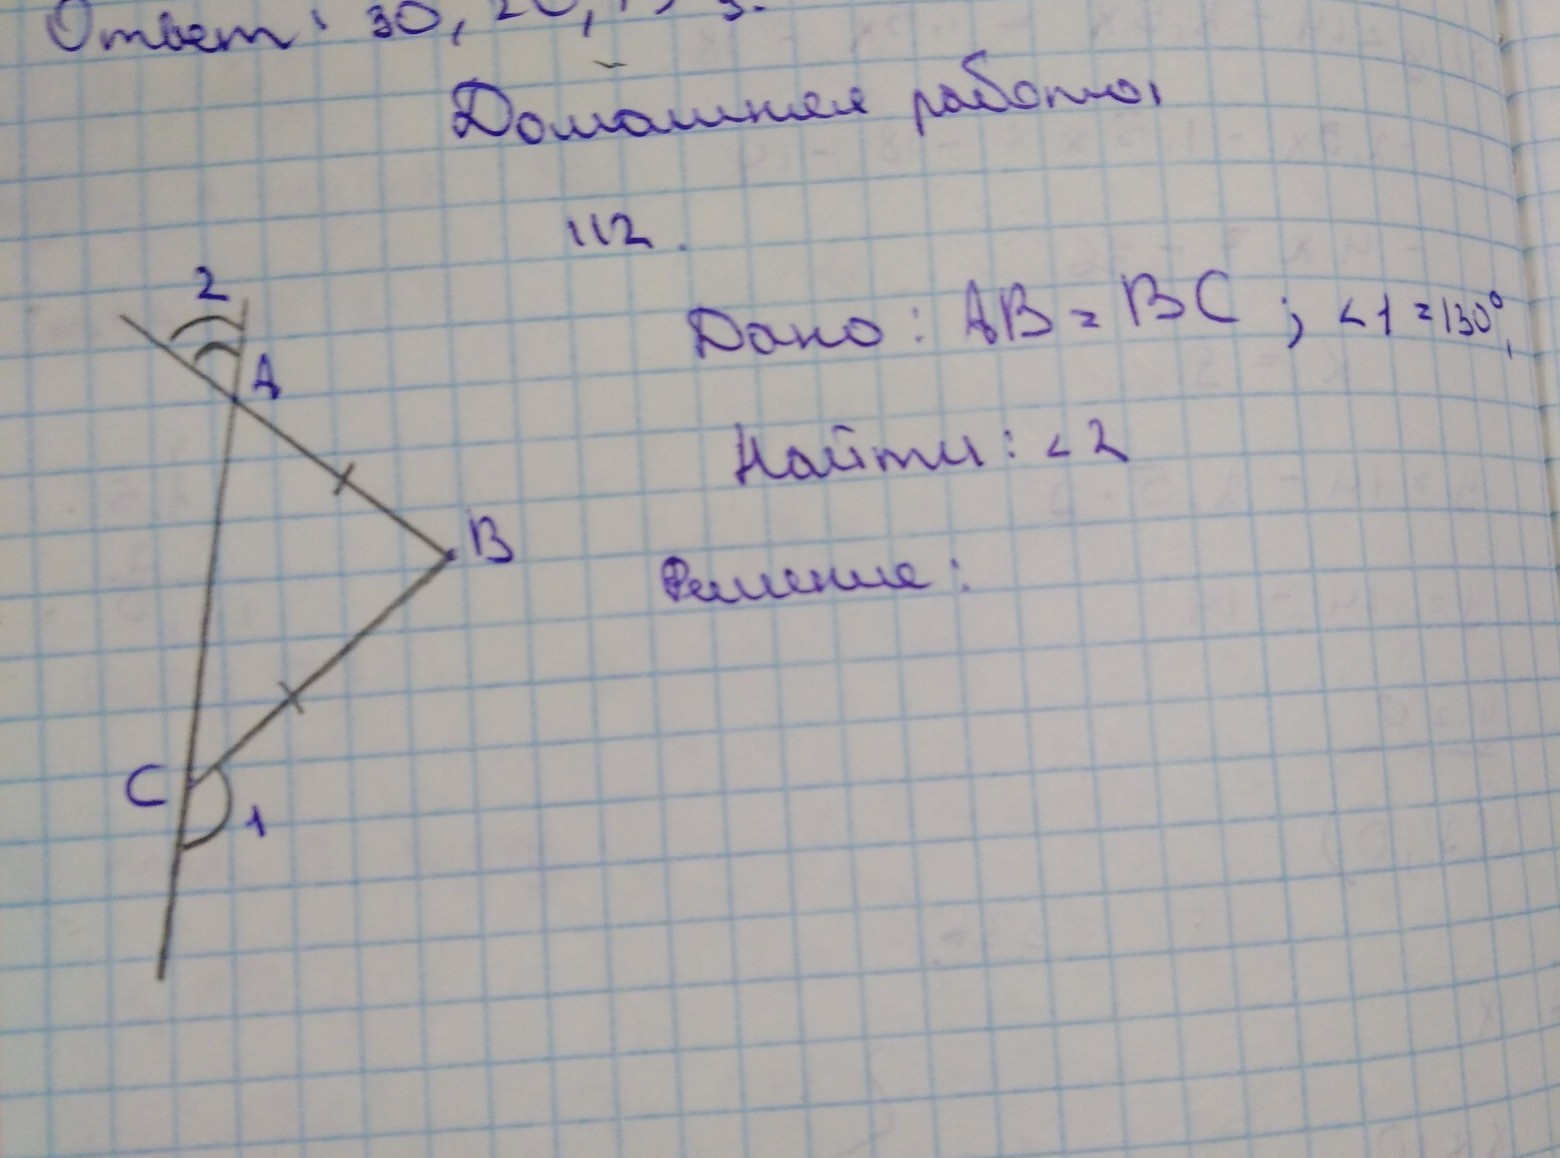 Ответ: 30,
Домашняя работа
112.
Дано: AB = BC; <1 = 130°,
Найти: <2
Решение:
2
A
B
C
1